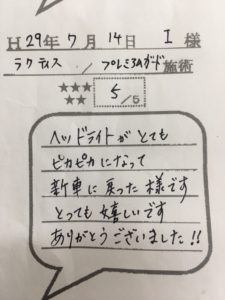 H29年7月14日 I 様
ラクティス／プレミアムガード施術
★★★
★★
5/5
ヘッドライトがとても
ピカピカになって
新車に戻った様です
とっても嬉しいです
ありがとうございました!!